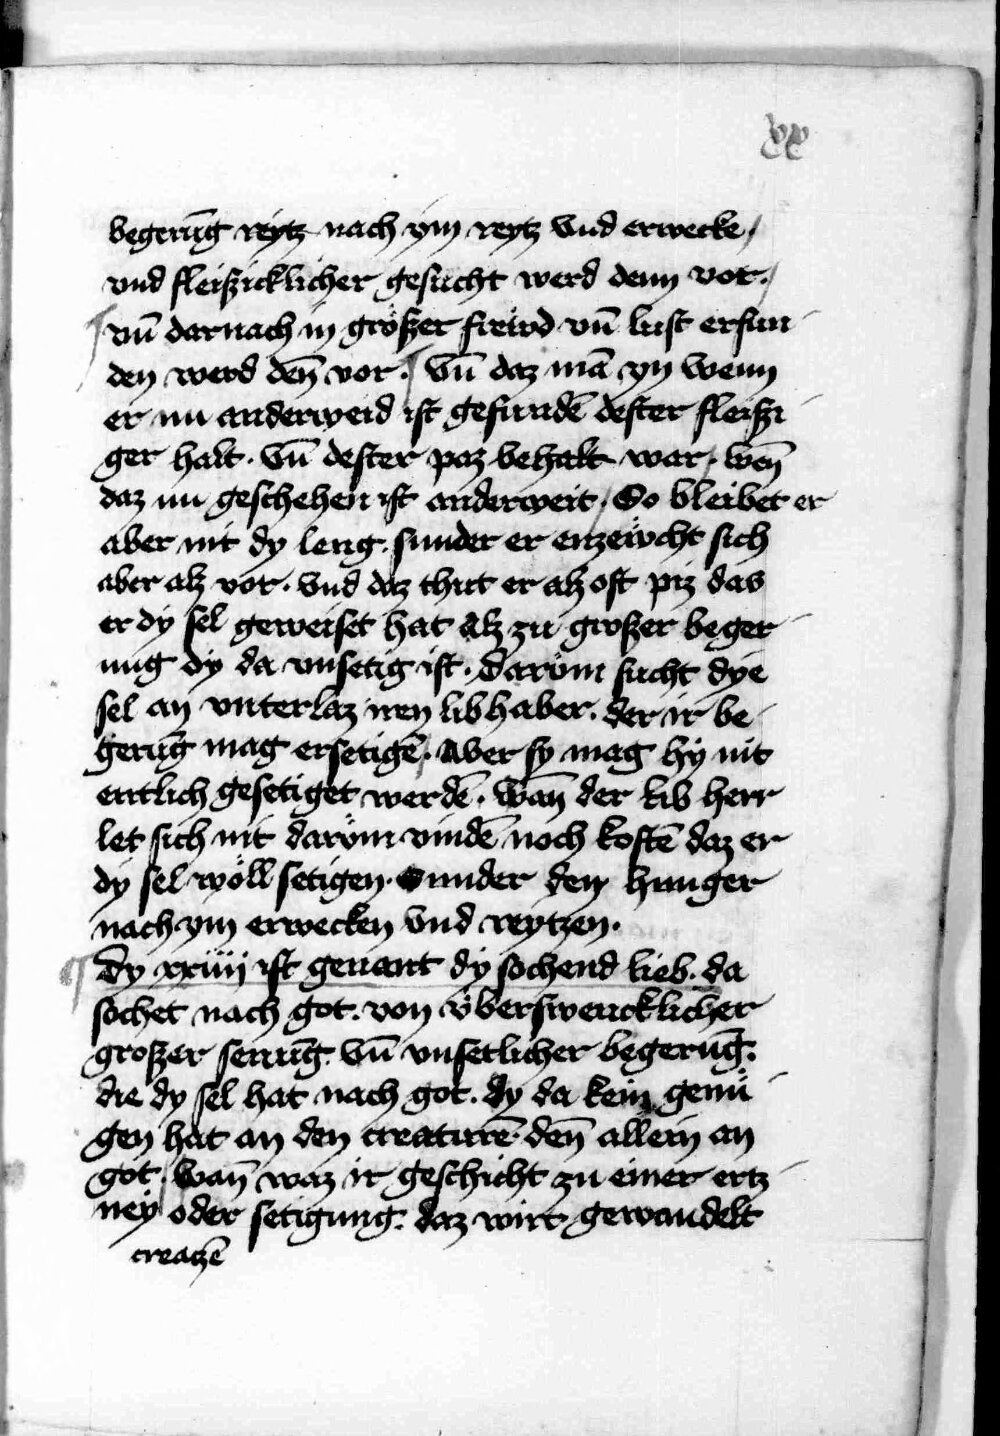 xx
begerūg reytz nach ym reytz vnd erwecke /
vnd fleißicklicher gesucht werd denn vor. /
vn̄ darnach in größer frewd vn̄ lust erfun
den werd den̄ vor. vn̄ daz mā yn wenn
er nu anderweid ist gefundē dester fleißi
ger halt. vn̄ dester paz behalt war. wen̄
daz nu geschehen ist anderweit / So bleibet er
aber nit dy leng. sunder er enzewcht sich
aber alz vor. vnd daz thut er alz oft piz das
er dy sel geweiset hat alz zu großer beger
ung dy da vnsetig ist. darvm sucht dye
sel an vnterlaz iren libhaber. der ir be
gerūg mag ersetigē. Aber sy mag hy nit
entlich gesetiget werdē. wan̄ der lib herr
let sich nit darvm vindē noch kostē daz er
dy sel wöll setigen. Sunder den hunger
nach ym erwecken vnd reytzen.
Dy xxiiij ist genant dy sochend lieb. da
sochet nach got. von v̈berswencklicher
großer senūg. vn̄ vnsetlicher begerūg.
die dy sel hat nach got. dy da kein genu
gen hat an den creaturē. den̄ allein an
got. wan̄ waz ir geschicht zu einer ertz
ney oder setigung. daz wirt gewandelt
creatzē